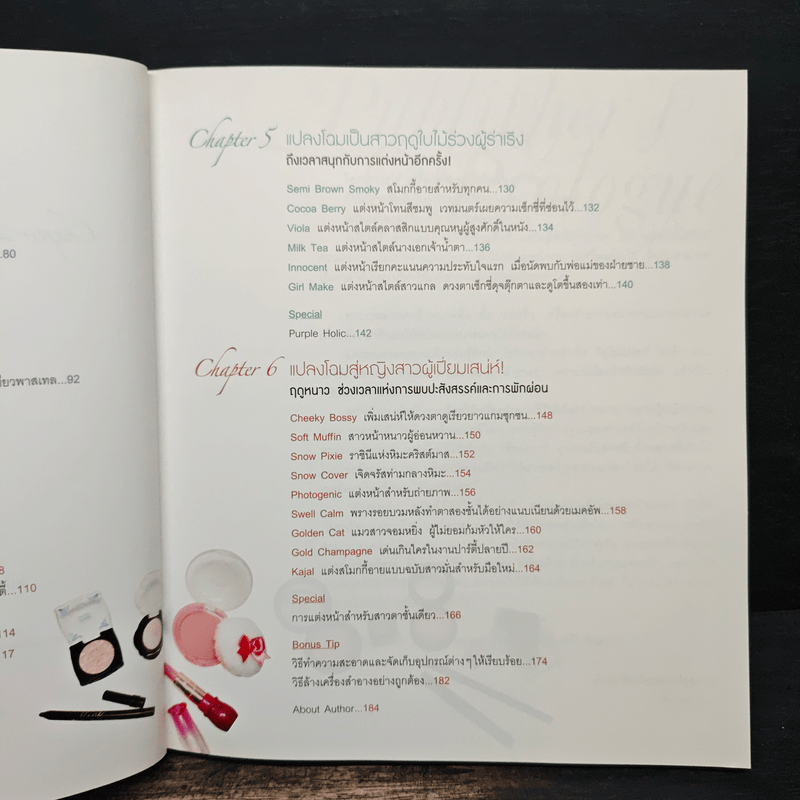 ...80
ขียวพาสเทล...92
8
ตี้...110
114
117
Chapter 5 แปลงโฉมเป็นสาวฤดูใบไม้ร่วงผู้ร่าเริง
ถึงเวลาสนุกกับการแต่งหน้าอีกครั้ง!
Semi Brown Smoky สโมกกี้อายสำหรับทุกคน...130
Cocoa Berry แต่งหน้าโทนสีชมพู เวทมนตร์เผยความเซ็กซี่ที่ซ่อนไว้...132
Viola แต่งหน้าสไตล์คลาสสิกแบบคุณหนูผู้สูงศักดิ์ในหนัง...134
Milk Tea แต่งหน้าสไตล์นางเอกเจ้าน้ำตา...136
Innocent แต่งหน้าเรียกคะแนนความประทับใจแรก เมื่อนัดพบกับพ่อแม่ของฝ่ายชาย...138
Girl Make แต่งหน้าสไตล์สาวแกล ดวงตาเซ็กซี่ดุจตุ๊กตาและดูโตขึ้นสองเท่า...140
Special
Purple Holic...142
Chapter 6 แปลงโฉมสู่หญิงสาวผู้เปี่ยมเสน่ห์!
ฤดูหนาว ช่วงเวลาแห่งการพบปะสังสรรค์และการพักผ่อน
Cheeky Bossy เพิ่มเสน่ห์ให้ดวงตาดูเรียวยาวแกมซุกซน...148
Soft Muffin สาวหน้าหนาวผู้อ่อนหวาน...150
Snow Pixie ราชินีแห่งหิมะคริสต์มาส...152
Snow Cover เจิดจรัสท่ามกลางหิมะ...154
Photogenic แต่งหน้าสำหรับถ่ายภาพ...156
Swell Calm พรางรอยบวมหลังทำตาสองชั้นได้อย่างแนบเนียนด้วยเมคอัพ...158
Golden Cat แมวสาวจอมหยิ่ง ผู้ไม่ยอมก้มหัวให้ใคร...160
Gold Champagne เด่นเกินใครในงานปาร์ตี้ปลายปี...162
Kajal แต่งสโมกกี้อายแบบฉบับสาวมั่นสำหรับมือใหม่...164
Special
การแต่งหน้าสำหรับสาวตาชั้นเดียว...166
Bonus Tip
วิธีทำความสะอาดและจัดเก็บอุปกรณ์ต่างๆ ให้เรียบร้อย...174
วิธีล้างเครื่องสำอางอย่างถูกต้อง...182
About Author...184